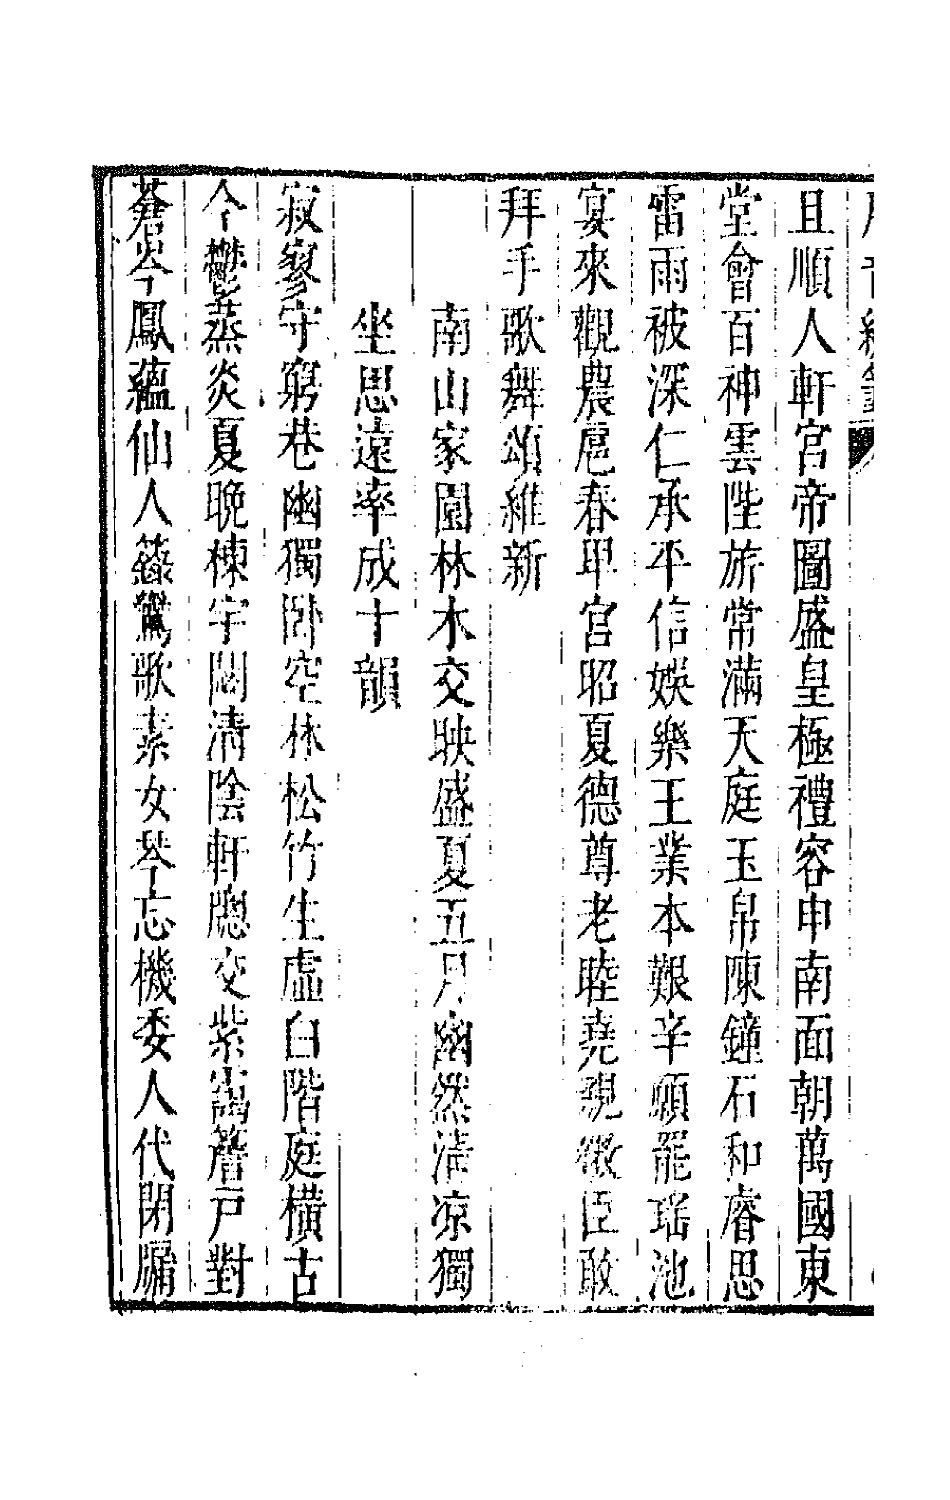 且順人軒宮帝圖盛皇極禮容申南面朝萬國東
堂會百神雲陛旂常滿天庭玉帛陳鐘石和睿思
雷雨被深仁承平信娛樂王業本艱辛願罷瑶池
宴來觀農扈春卑宮昭夏德尊老睦堯親微臣敢
拜手歌舞頌維新
南山家園林木交映盛夏五月幽然清凉獨
坐思遠率成十韻
寂寥守窮巷幽獨卧空林松竹生虛白階庭橫古
今鬱蒸炎夏晚棟宇閟清陰軒牕交紫靄簷戶對
蒼岑鳳蘊仙人籙鸞歌素女琴忘機委人代閉牖